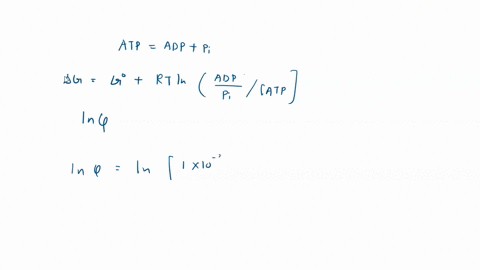 ATP = ADP + Pi
ΔG = G° + RT ln ( ADP / Pi / [ATP ]
ln φ
ln φ = ln [ 1 × 10⁻